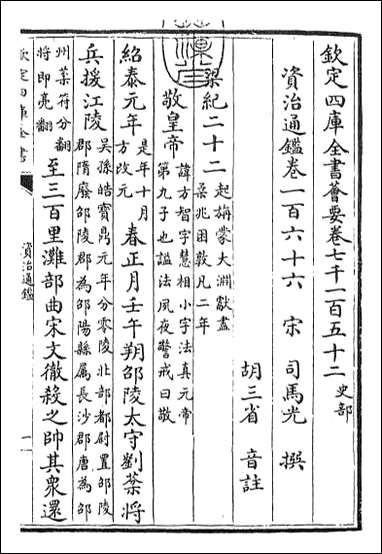 欽定四庫全書薈要卷七千一百五十二 史部
資治通鑑卷一百六十六 宋 司馬光 撰
胡三省 音註
梁紀二十二 起旃蒙大淵獻盡柔兆困敦凡二年
敬皇帝 諱方智字慧相小字法真元帝第九子也諡法夙夜警戒曰敬
紹泰元年 是年十月方改元 春正月壬午朔邵陵太守劉棻將
兵援江陵 吳孫皓寶鼎元年分零陵北部都尉置邵陵郡隋廢邵陵郡為邵陽縣屬長沙郡唐為邵
州棻符分翻將即亮翻 至三百里灘部曲宋文徹殺之帥其衆還
欽定四庫全書
資治通鑑
一